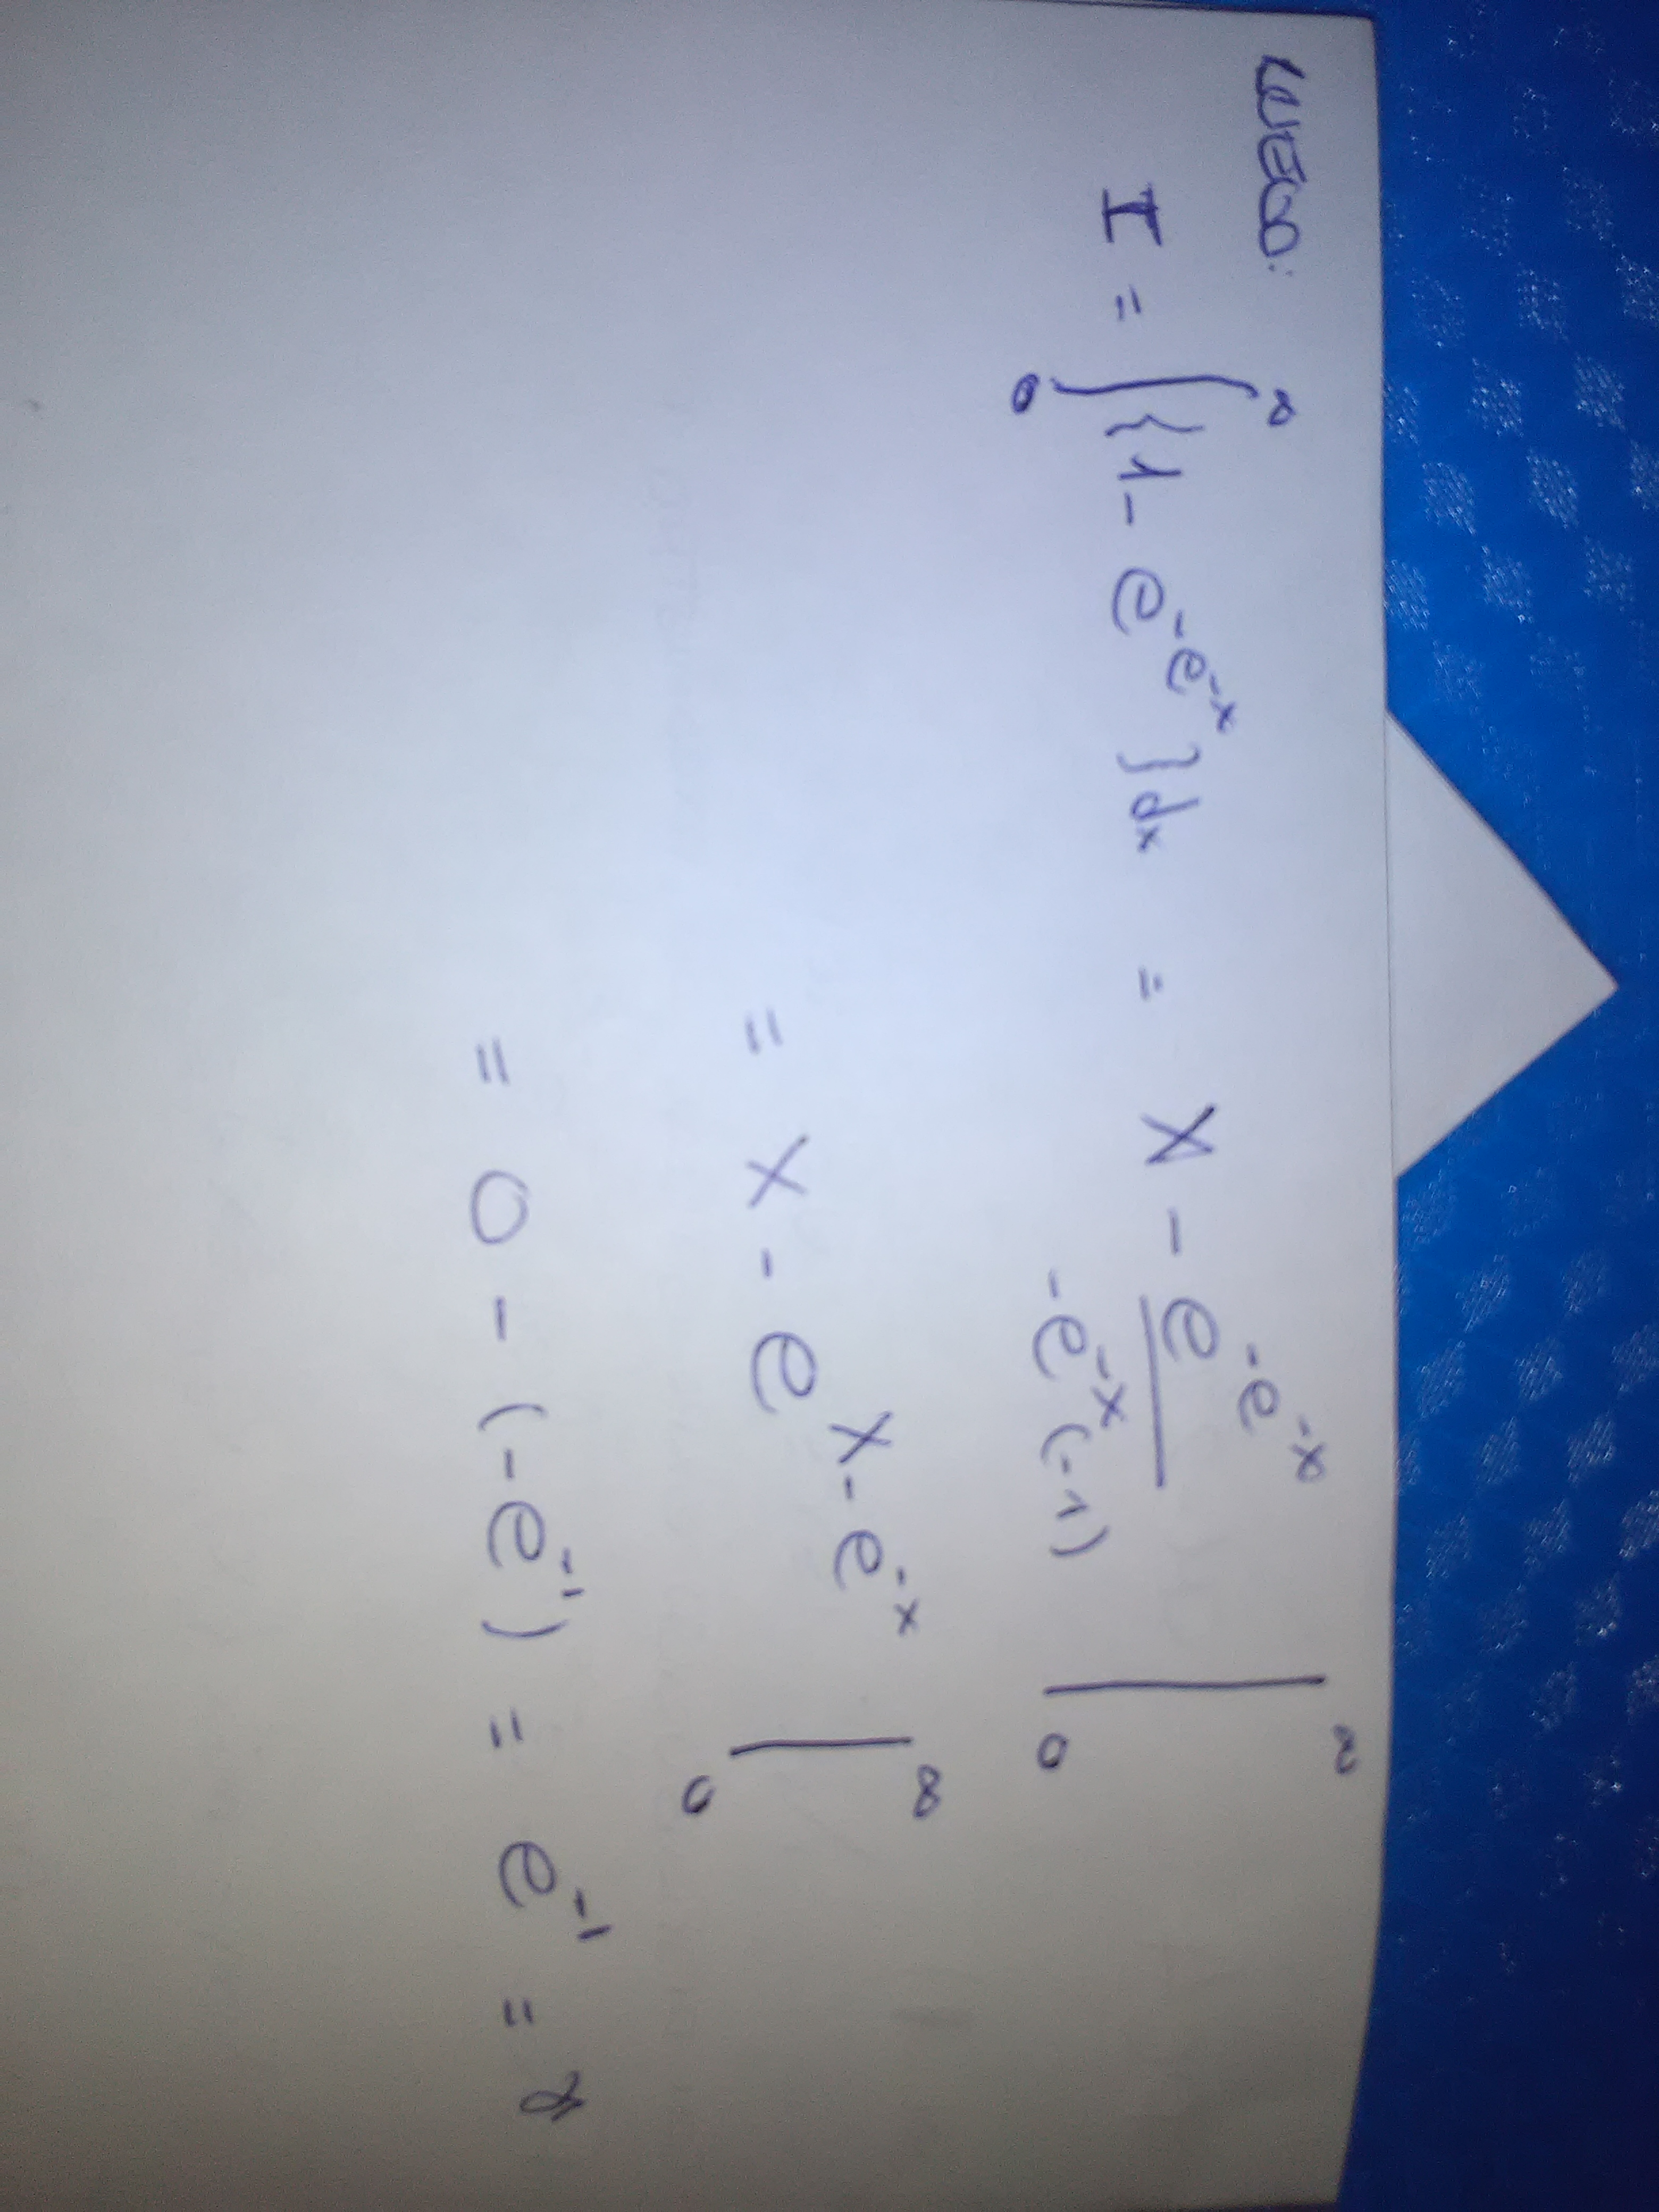 LUEGO:
I = ∫₀^∞ {1 - e^{-e^{-x}}} dx = x - e^{-e^{-x}} / (-e^{-x}(-1)) |₀^∞
= x - e^{x - e^{-x}} |₀^∞
= 0 - (-e^{-1}) = e^{-1} = γ